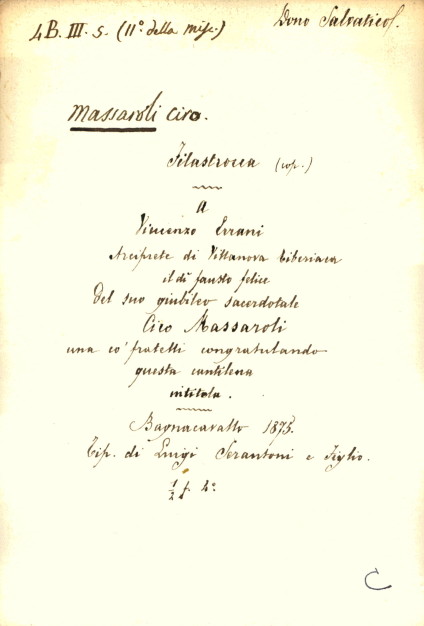 4 B. III. 5. (11º. della misc.)
Dono Salvatico.
Massaroli Ciro.
Filastrocca (cop.)
A
Vincenzo Errani
Arciprete di Villanova Tiberiaca
il dì fausto felice
Del suo giubileo sacerdotale
Ciro Massaroli
una co' fratelli congratulando
questa cantilena
intitola.
Bagnacavallo 1875.
Tip. di Luigi Serantoni e Figlio.
½ f. 4º.
C